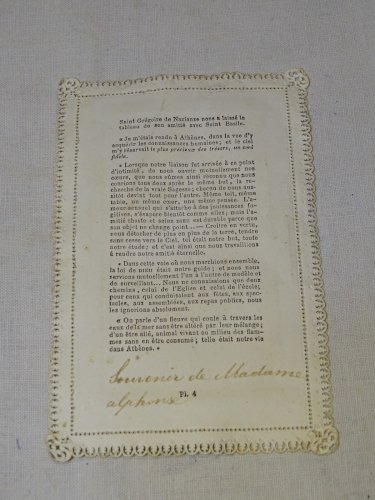 Saint Grégoire de Nazianze nous a laissé le
tableau de son amitié avec Saint Basile.
« Je m'étais rendu à Athènes, dans la vue d'y
acquérir les connaissances humaines; et le ciel
m'y réservait le plus précieux des trésors, un ami
fidèle.
« Lorsque notre liaison fut arrivée à ce point
d'intimité, de nous ouvrir mutuellement nos
cœurs, que nous eûmes ainsi reconnu que nous
tendions tous deux après le même but, la re-
cherche de la vraie Sagesse; chacun de nous aus-
sitôt devint tout pour l'autre. Même toit, même
table, un même cœur, une même pensée. L'a-
mour sensuel qui s'attache à des jouissances fu-
gitives, s'évapore bientôt comme elles; mais l'a-
mitié chaste et sainte est durable parce que
son objet ne change point.... — Croître en vertu,
nous détacher de plus en plus de la terre, tendre
sans cesse vers le Ciel, tel était notre but, toute
notre étude; et c'est ainsi que nous travaillions
à rendre notre amitié éternelle.
« Dans cette voie où nous marchions ensemble,
la loi de Dieu était notre guide; et nous nous
servions mutuellement l'un à l'autre de modèle et
de surveillant... Nous ne connaissions que deux
chemins, celui de l'Eglise et celui de l'école;
pour ceux qui conduisaient aux fêtes, aux spec-
tacles, aux assemblées, aux repas publics, nous
les ignorions absolument.
« On parle d'un fleuve qui coule à travers les
eaux de la mer sans être altéré par leur mélange;
d'un être ailé, animal vivant au milieu des flam-
mes sans en être consumé; telle était notre vie
dans Athènes. »
Souvenir de Madame
alphonse
Pl. 4